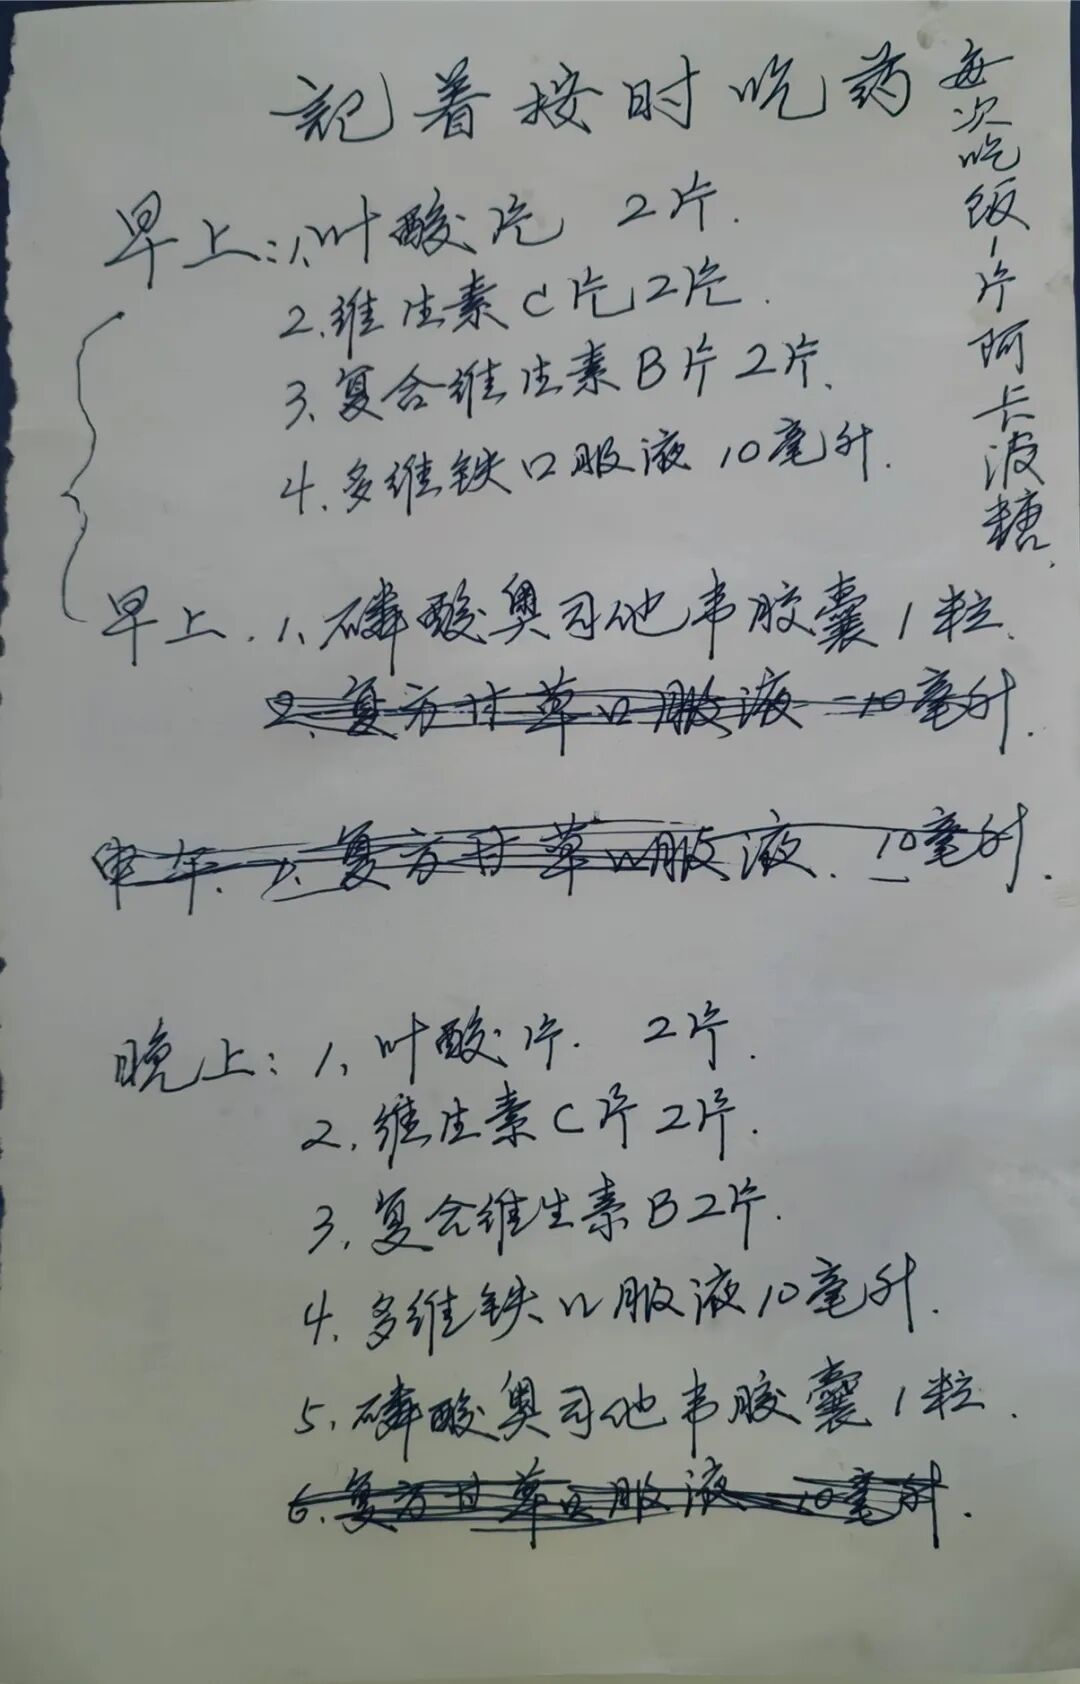 記着按时吃药
每次吃饭1片阿卡波糖.
早上:1、叶酸片 2片.
2.维生素C片2片.
3、复合维生素B片2片.
4.多维铁口服液10毫升.
早上.1、磷酸奥司他韦胶囊1粒.
2、复方甘草口服液10毫升.
中午.1、复方甘草口服液.10毫升.
晚上:1、叶酸片. 2片.
2.维生素C片2片.
3.复合维生素B2片.
4.多维铁口服液10毫升.
5.磷酸奥司他韦胶囊1粒.
6.复方甘草口服液10毫升.